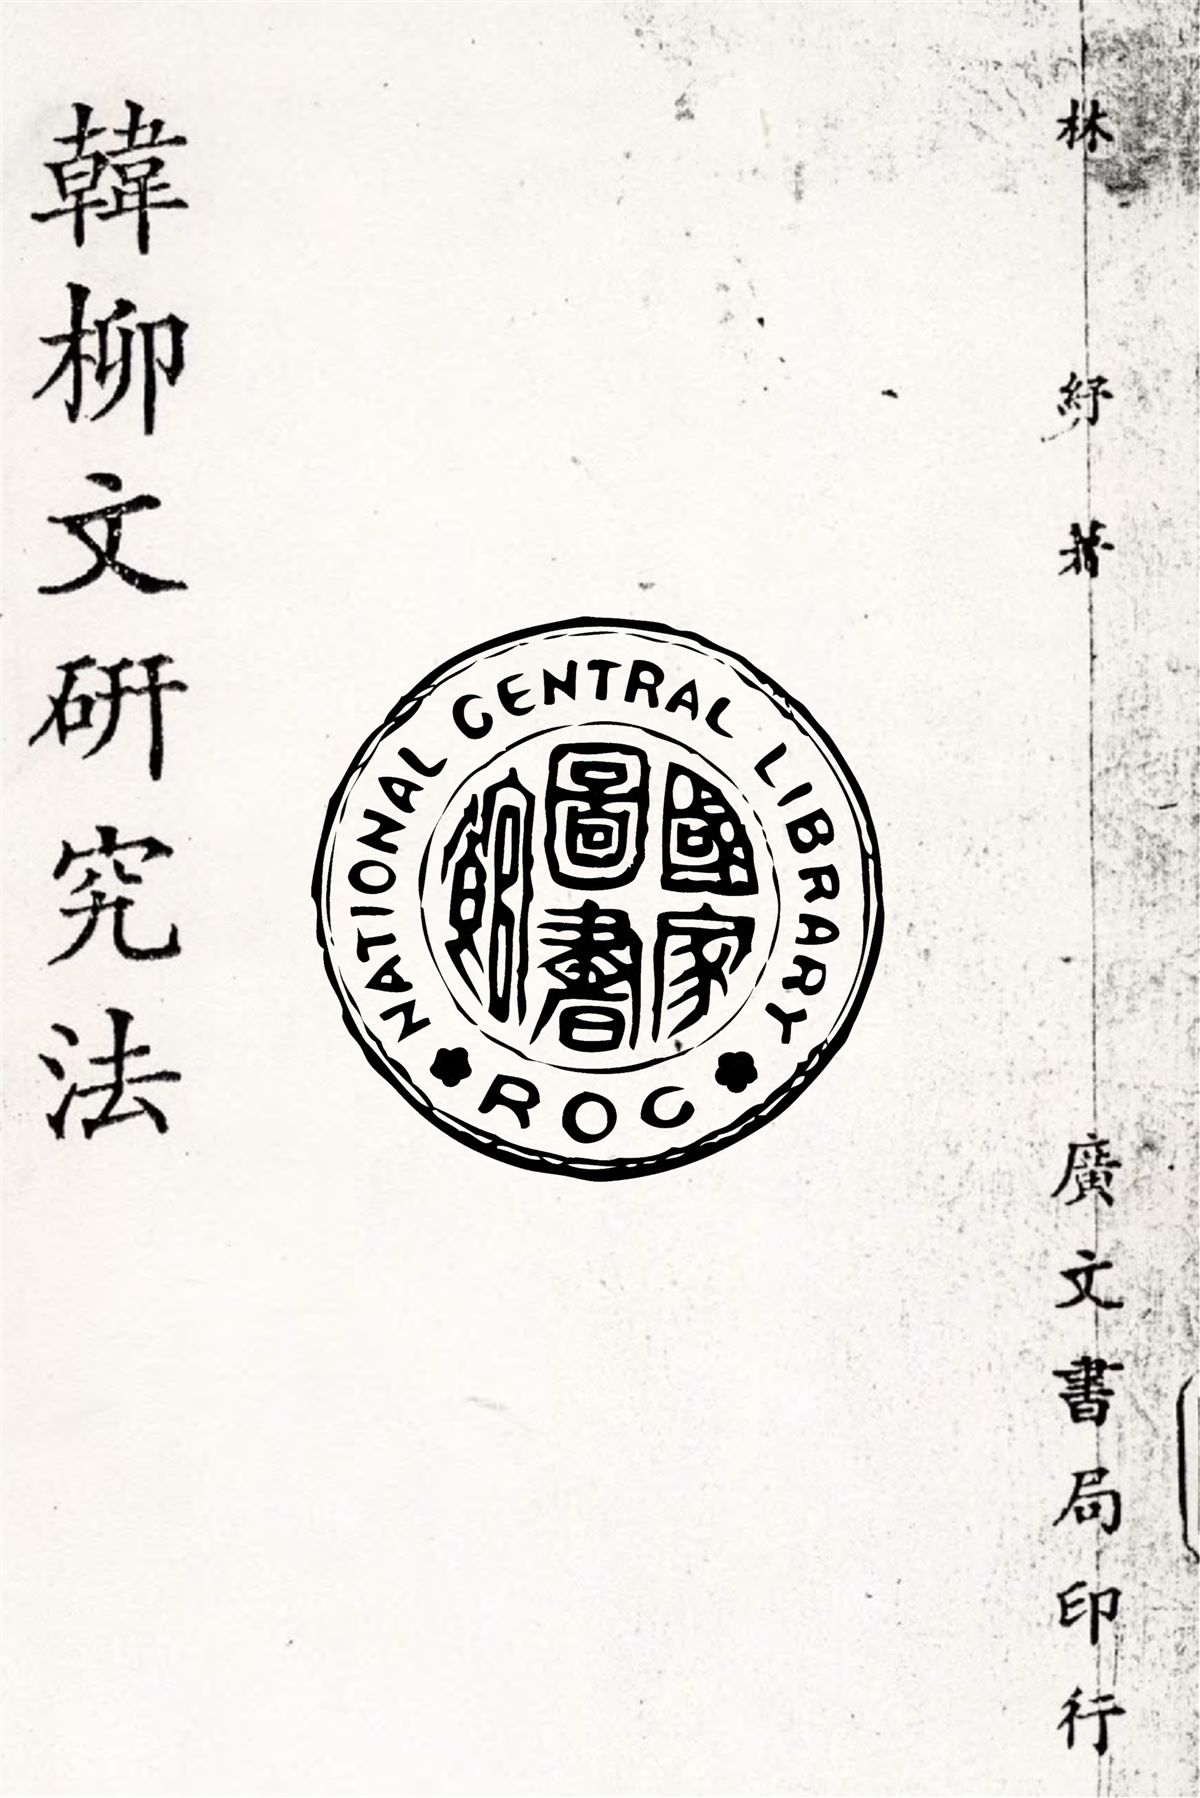 林紓著
廣文書局印行
NATIONAL CENTRAL LIBRARY
國家
圖書
館
ROC
韓柳文研究法